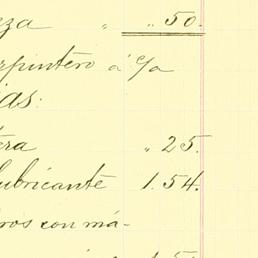 eza " " 50.
rpintero á c/a
ias:
era " 25.
lubricante 1.54.
ros con má-